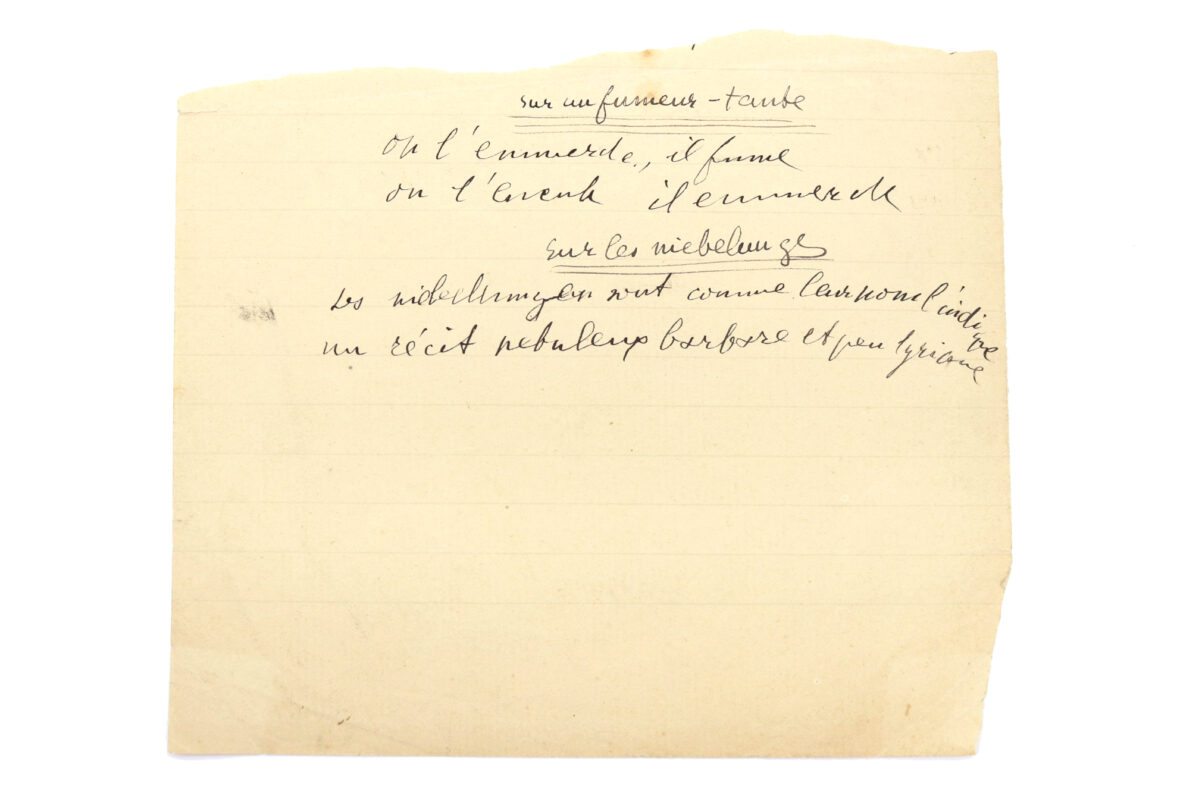 sur un fumeur-tante
on l'emmerde, il fume
on l'encule il emmerde
sur les niebelunges
Les niebelungen sont comme leur nom l'indique
un récit nebuleux barbare et peu lyrique